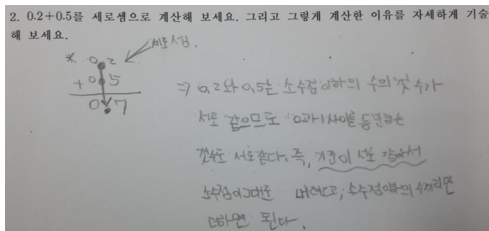 2. 0.2+0.5를 세로셈으로 계산해 보세요. 그리고 그렇게 계산한 이유를 자세하게 기술
해 보세요.
* 0.2 세로셈.
+ 0.5
0.7
⇒ 0.2와 0.5는 소수점이하의 수의 갯수가
서로 같으므로 0과 1사이를 등분하는
것수도 서로같다. 즉, 기준이 서로 같아서
소수점이그대로 내려오고, 소수점이하의 수끼리만
더하면 된다.